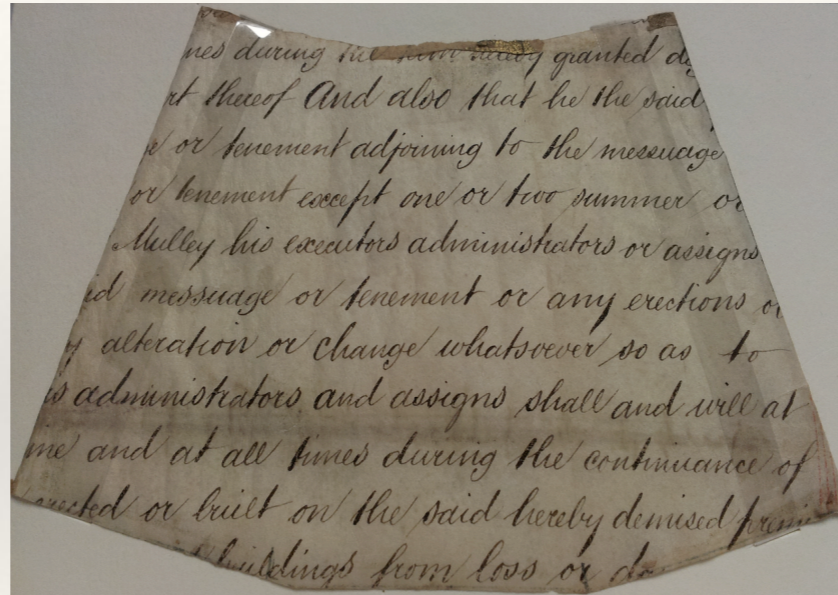 nes during the term hereby granted
rt thereof And also that he the said
or tenement adjoining to the messuage
or tenement except one or two summer or
Mulley his executors administrators or assigns
id messuage or tenement or any erections or
alteration or change whatsoever so as to
s administrators and assigns shall and will at
me and at all times during the continuance of
erected or built on the said hereby demised premi
buildings from loss or